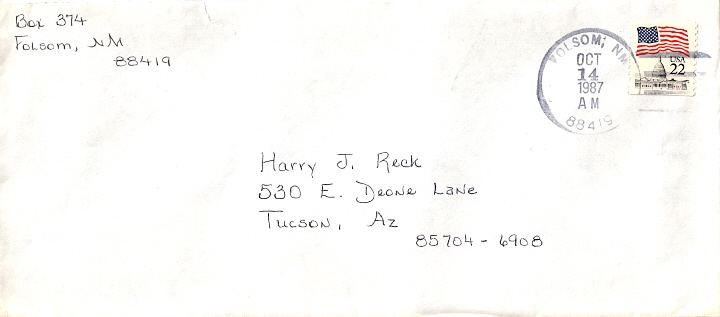 Box 374
Folsom, NM
88419
FOLSOM, NM
OCT
14
1987
AM
88419
USA
22
Harry J. Reck
530 E. Deone Lane
Tucson, Az
85704-6908